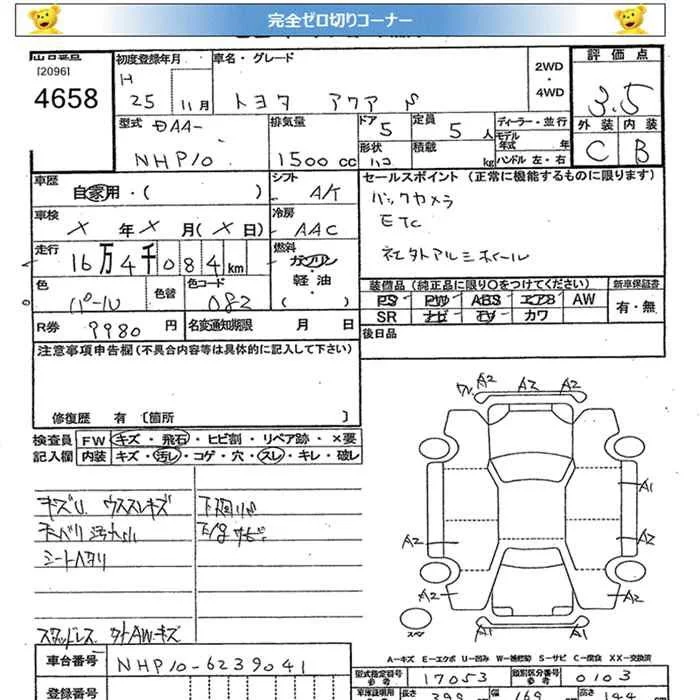 完全ゼロ切りコーナー
[2096]
4658
初度登録年月
H
25 11月
車名・グレード
トヨタ アクア S
2WD
・
4WD
評価点
3.5
外装 内装
C B
型式 DAA-
NHP10
排気量
1500cc
ドア 5
形状 ハコ
定員 5人
積載 kg
ディーラー・並行
モデル年式 年
ハンドル 左・右
車歴
自家用・( )
シフト
A/T
車検
X年X月(X日)
冷房
AAC
走行
16万4千084km
燃料
ガソリン・軽油・( )
色
パール
色替
色コード
082
R券 9980円
名変通知期限 月 日
セールスポイント (正常に機能するものに限ります)
バックカメラ
ETC
社外アルミホイール
装備品 (純正品に限り○をつけてください)
PS PW ABS エアB AW
SR ナビ TV カワ
新車保証書
有・無
後日品
注意事項申告欄(不具合内容等は具体的に記入して下さい)
修復歴 有 〔箇所 〕
検査員
記入欄
FW キズ・飛石・ヒビ割・リペア跡・×要
内装 キズ・汚レ・コゲ・穴・スレ・キレ・破レ
キズU. ウススレキズ 下廻りサビ
天ベリ汚れ
シートヘタリ
スタッドレス 外AWキズ
A2 A2 A2
A1
A2 A2
A2 A2
A1 A1
スペア
A-キズ E-エクボ U-凹み W-補修跡 S-サビ C-腐食 XX-交換済
車台番号
NHP10-6239041
登録番号
型式指定番号
参考
17053
類別区分番号
参考
0103
長さ 399 幅 169 高さ 144